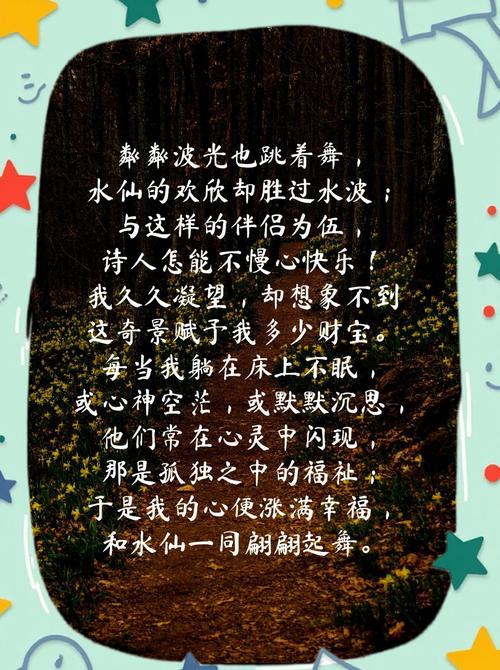 粼粼波光也跳着舞，
水仙的欢欣却胜过水波；
与这样的伴侣为伍，
诗人怎能不慢心快乐！
我久久凝望，却想象不到
这奇景赋予我多少财宝。
每当我躺在床上不眠，
或心神空茫，或默默沉思，
他们常在心灵中闪现，
那是孤独之中的福祉；
于是我的心便涨满幸福，
和水仙一同翩翩起舞。